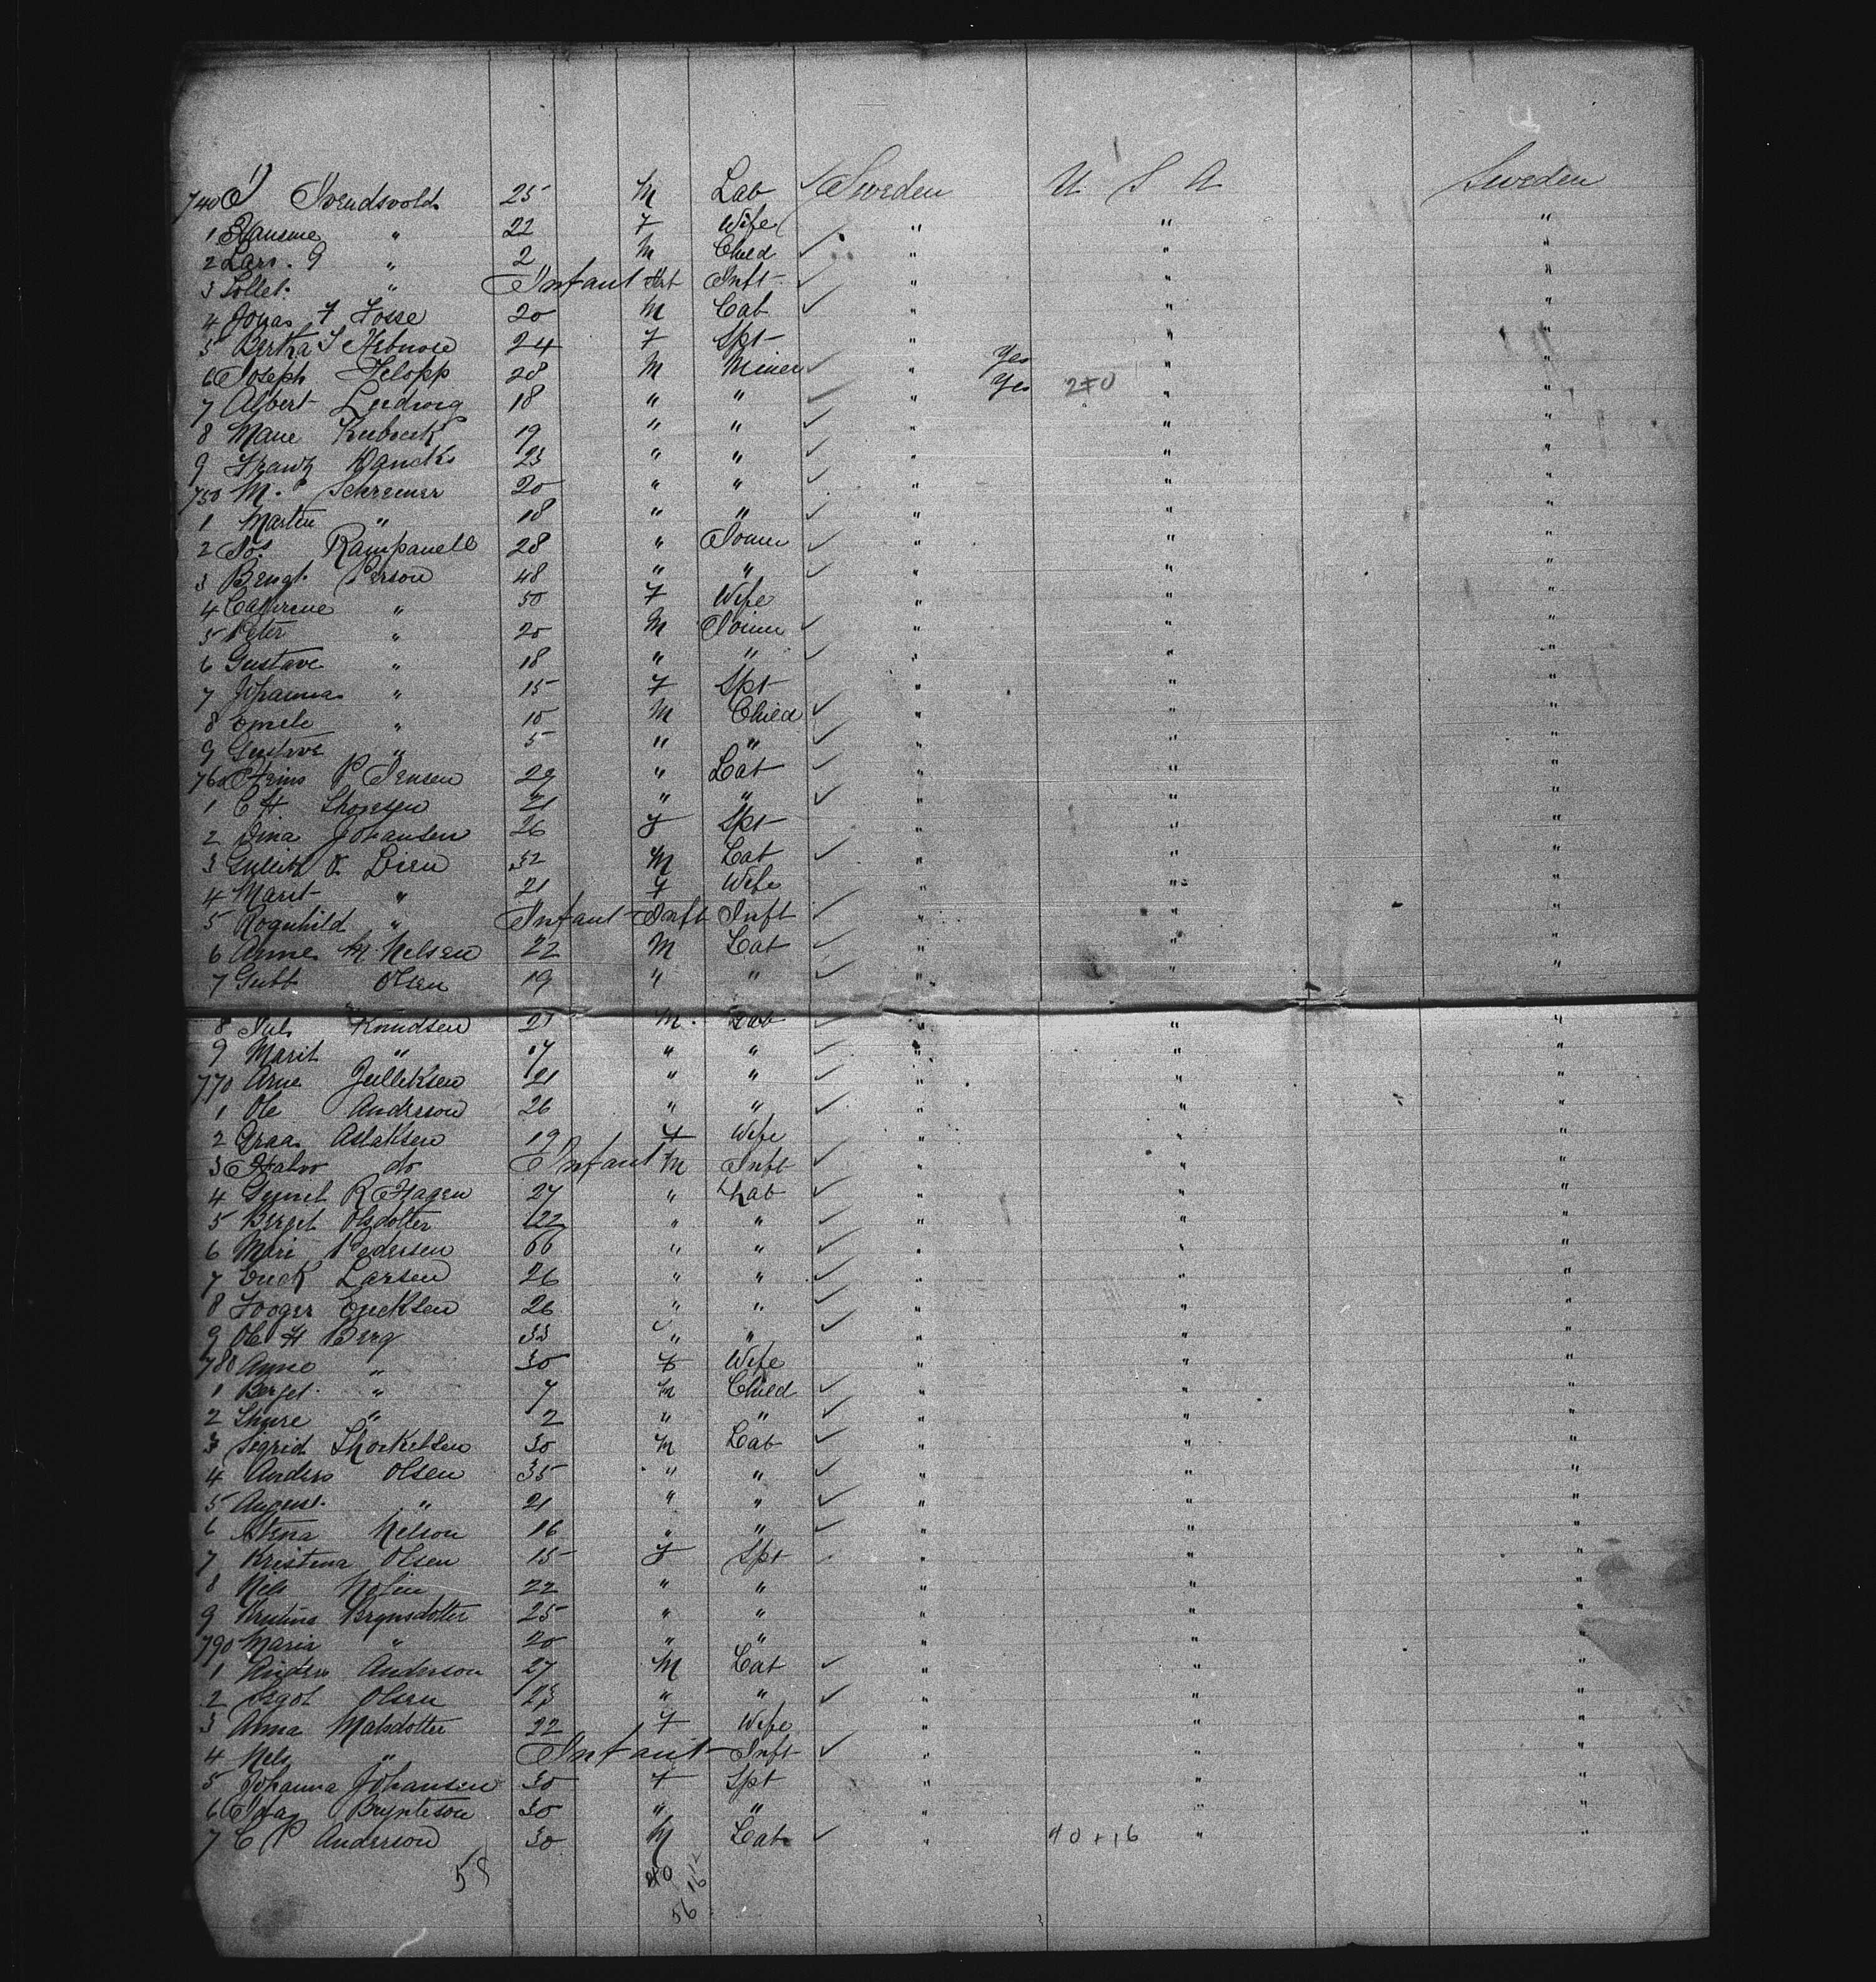 740 Svendsvold 25 M Lab ✓ Sweden U S A Sweden
1 " 22 F Wife " " "
2 Lars. G " 2 M Child ✓ " " "
3 " Infant Inft ✓ " " "
4 Jonas F Fosse 20 M Lab ✓ " " "
5 Bertha S 24 F Spt " " "
6 Joseph 28 M Miner ✓ " Yes " "
7 Albert Ludwig 18 " " ✓ " Yes " "
8 19 " " ✓ " " "
9 Frantz 23 " " ✓ " " "
750 M. Schreiner 20 " " ✓ " " "
1 Martin " 18 " " ✓ " " "
2 Jos Rampanell 28 " ✓ " " "
3 Bengt Person 48 " " ✓ " " "
4 Cathrine " 50 F Wife " " "
5 Peter " 20 M ✓ " " "
6 Gustave " 18 " " ✓ " " "
7 Johanna " 15 F Spt " " "
8 Emele " 10 M Child ✓ " " "
9 Gustave " 5 " " ✓ " " "
760 P Jensen 29 " Lab ✓ " " "
1 C H 21 " " ✓ " " "
2 Dina Johansen 26 F Spt " " "
3 Lien 32 M Lab ✓ " " "
4 Marit " 21 F Wife " " "
5 Rognhild " Infant Inft Inft ✓ " " "
6 Anne M Nelsen 22 M Lab ✓ " " "
7 Olsen 19 " " ✓ " " "
8 Knudsen M. Lab ✓ " " "
9 Marit " " " ✓ " " "
770 Arne 21 " " ✓ " " "
1 Ole Anderson 26 " " ✓ " " "
2 Aslaksen 19 F Wife " " "
3 Halvor do Infant M Inft ✓ " " "
4 R Hagen 27 " Lab ✓ " " "
5 Berget Olsdotter 22 " " ✓ " " "
6 Mari Pedersen 66 " " ✓ " " "
7 Erick Larsen 26 " " ✓ " " "
8 Ericksen 26 " " ✓ " " "
9 Ole H Berg 33 " " ✓ " " "
780 Anne " 30 F Wife " " "
1 Berget " 7 M Child ✓ " " "
2 Thure " 2 " " ✓ " " "
3 Sigrid Thorkelsen 30 M Lab ✓ " " "
4 Anders Olsen 35 " " ✓ " " "
5 August " 21 " " ✓ " " "
6 Nelson 16 " " ✓ " " "
7 Kristina Olsen 15 F Spt " " "
8 Nels 22 " " " " "
9 Kristina Brynsdotter 25 " " " " "
790 Maria " 20 " " " " "
1 Anders Anderson 27 M Lab ✓ " " "
2 Olsen 23 " " ✓ " " "
3 Anna Matsdotter 22 F Wife " " "
4 Nels " Infant Inft ✓ " " "
5 Johanna Johansen 30 F Spt " " "
6 Brynteson 30 " " " " "
7 C P Anderson 30 M Lab ✓ " 40 + 16 " "
58 40
16
56